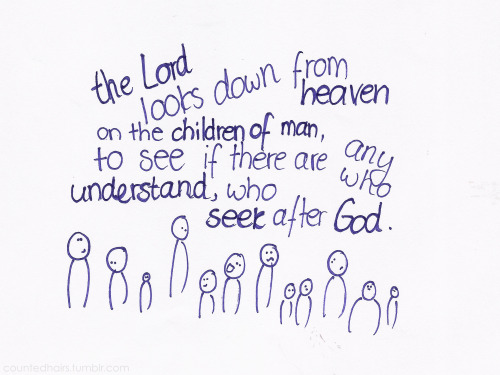 the Lord
looks down from
heaven
on the children of man,
to see if there are any
who
understand, who
seek after God.
countedhairs.tumblr.com